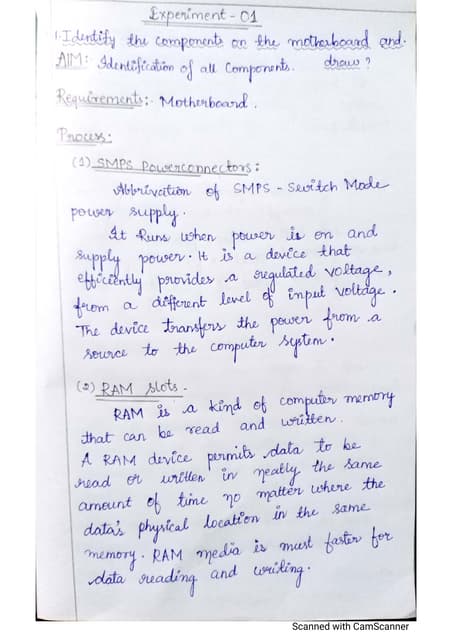 Experiment - 01
1. Identify the components on the motherboard and.
draw ?
AIM: Identification of all Components.
Requirements:- Motherboard.
Process:
(1) SMPS Powerconnectors:
Abbrivation of SMPS - Switch Mode
power supply.
It Runs when power is on and
supply power. It is a device that
efficiently provides a regulated voltage,
from a different level of input voltage.
The device transfers the power from a
source to the computer system.
(2) RAM slots.
RAM is a kind of computer memory
that can be read and written.
A RAM device permits data to be
read or written in neatly the same
amount of time no matter where the
data's physical location in the same
memory. RAM media is must faster for
data reading and writing.
Scanned with CamScanner